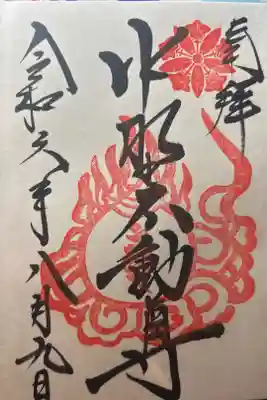 奉拝
水 不動尊
令和六年八月九日